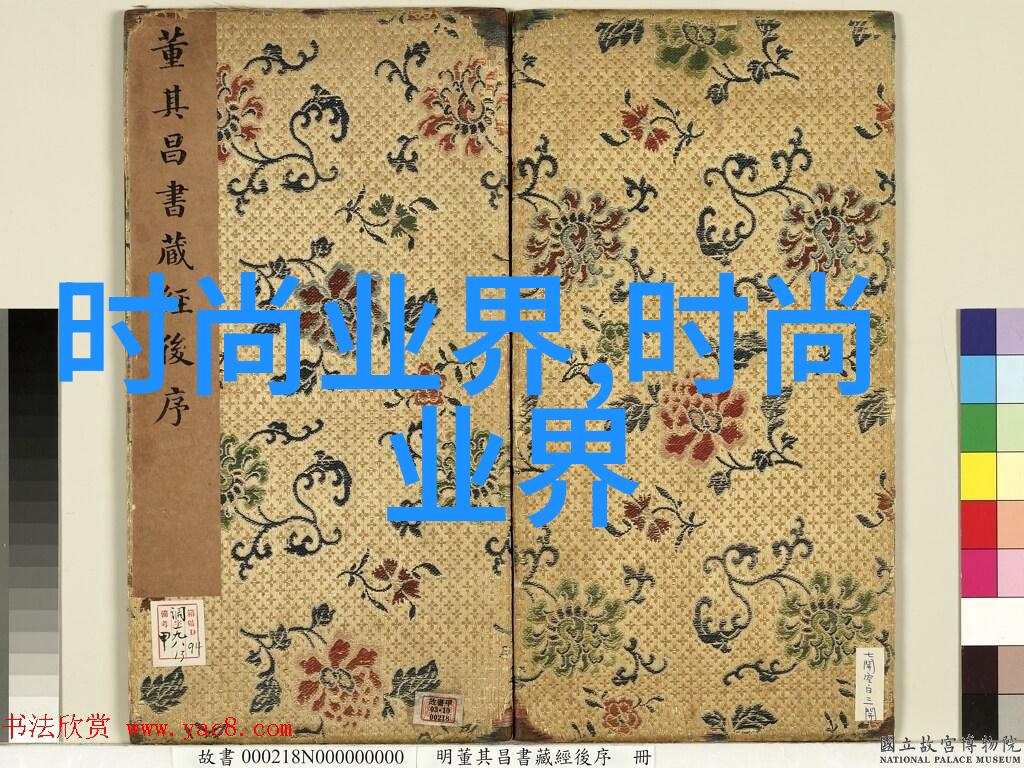 董其昌書藏經後序
时尚业界,时尚
业界
箱號D
備考
調字九八
13
94
甲
故書甲
03•10
00218
七開空白三開
书法欣赏 www.yac8.com
故書 000218N000000000
明董其昌書藏經後序 冊
國立故宮博物院
NATIONAL PALACE MUSEUM